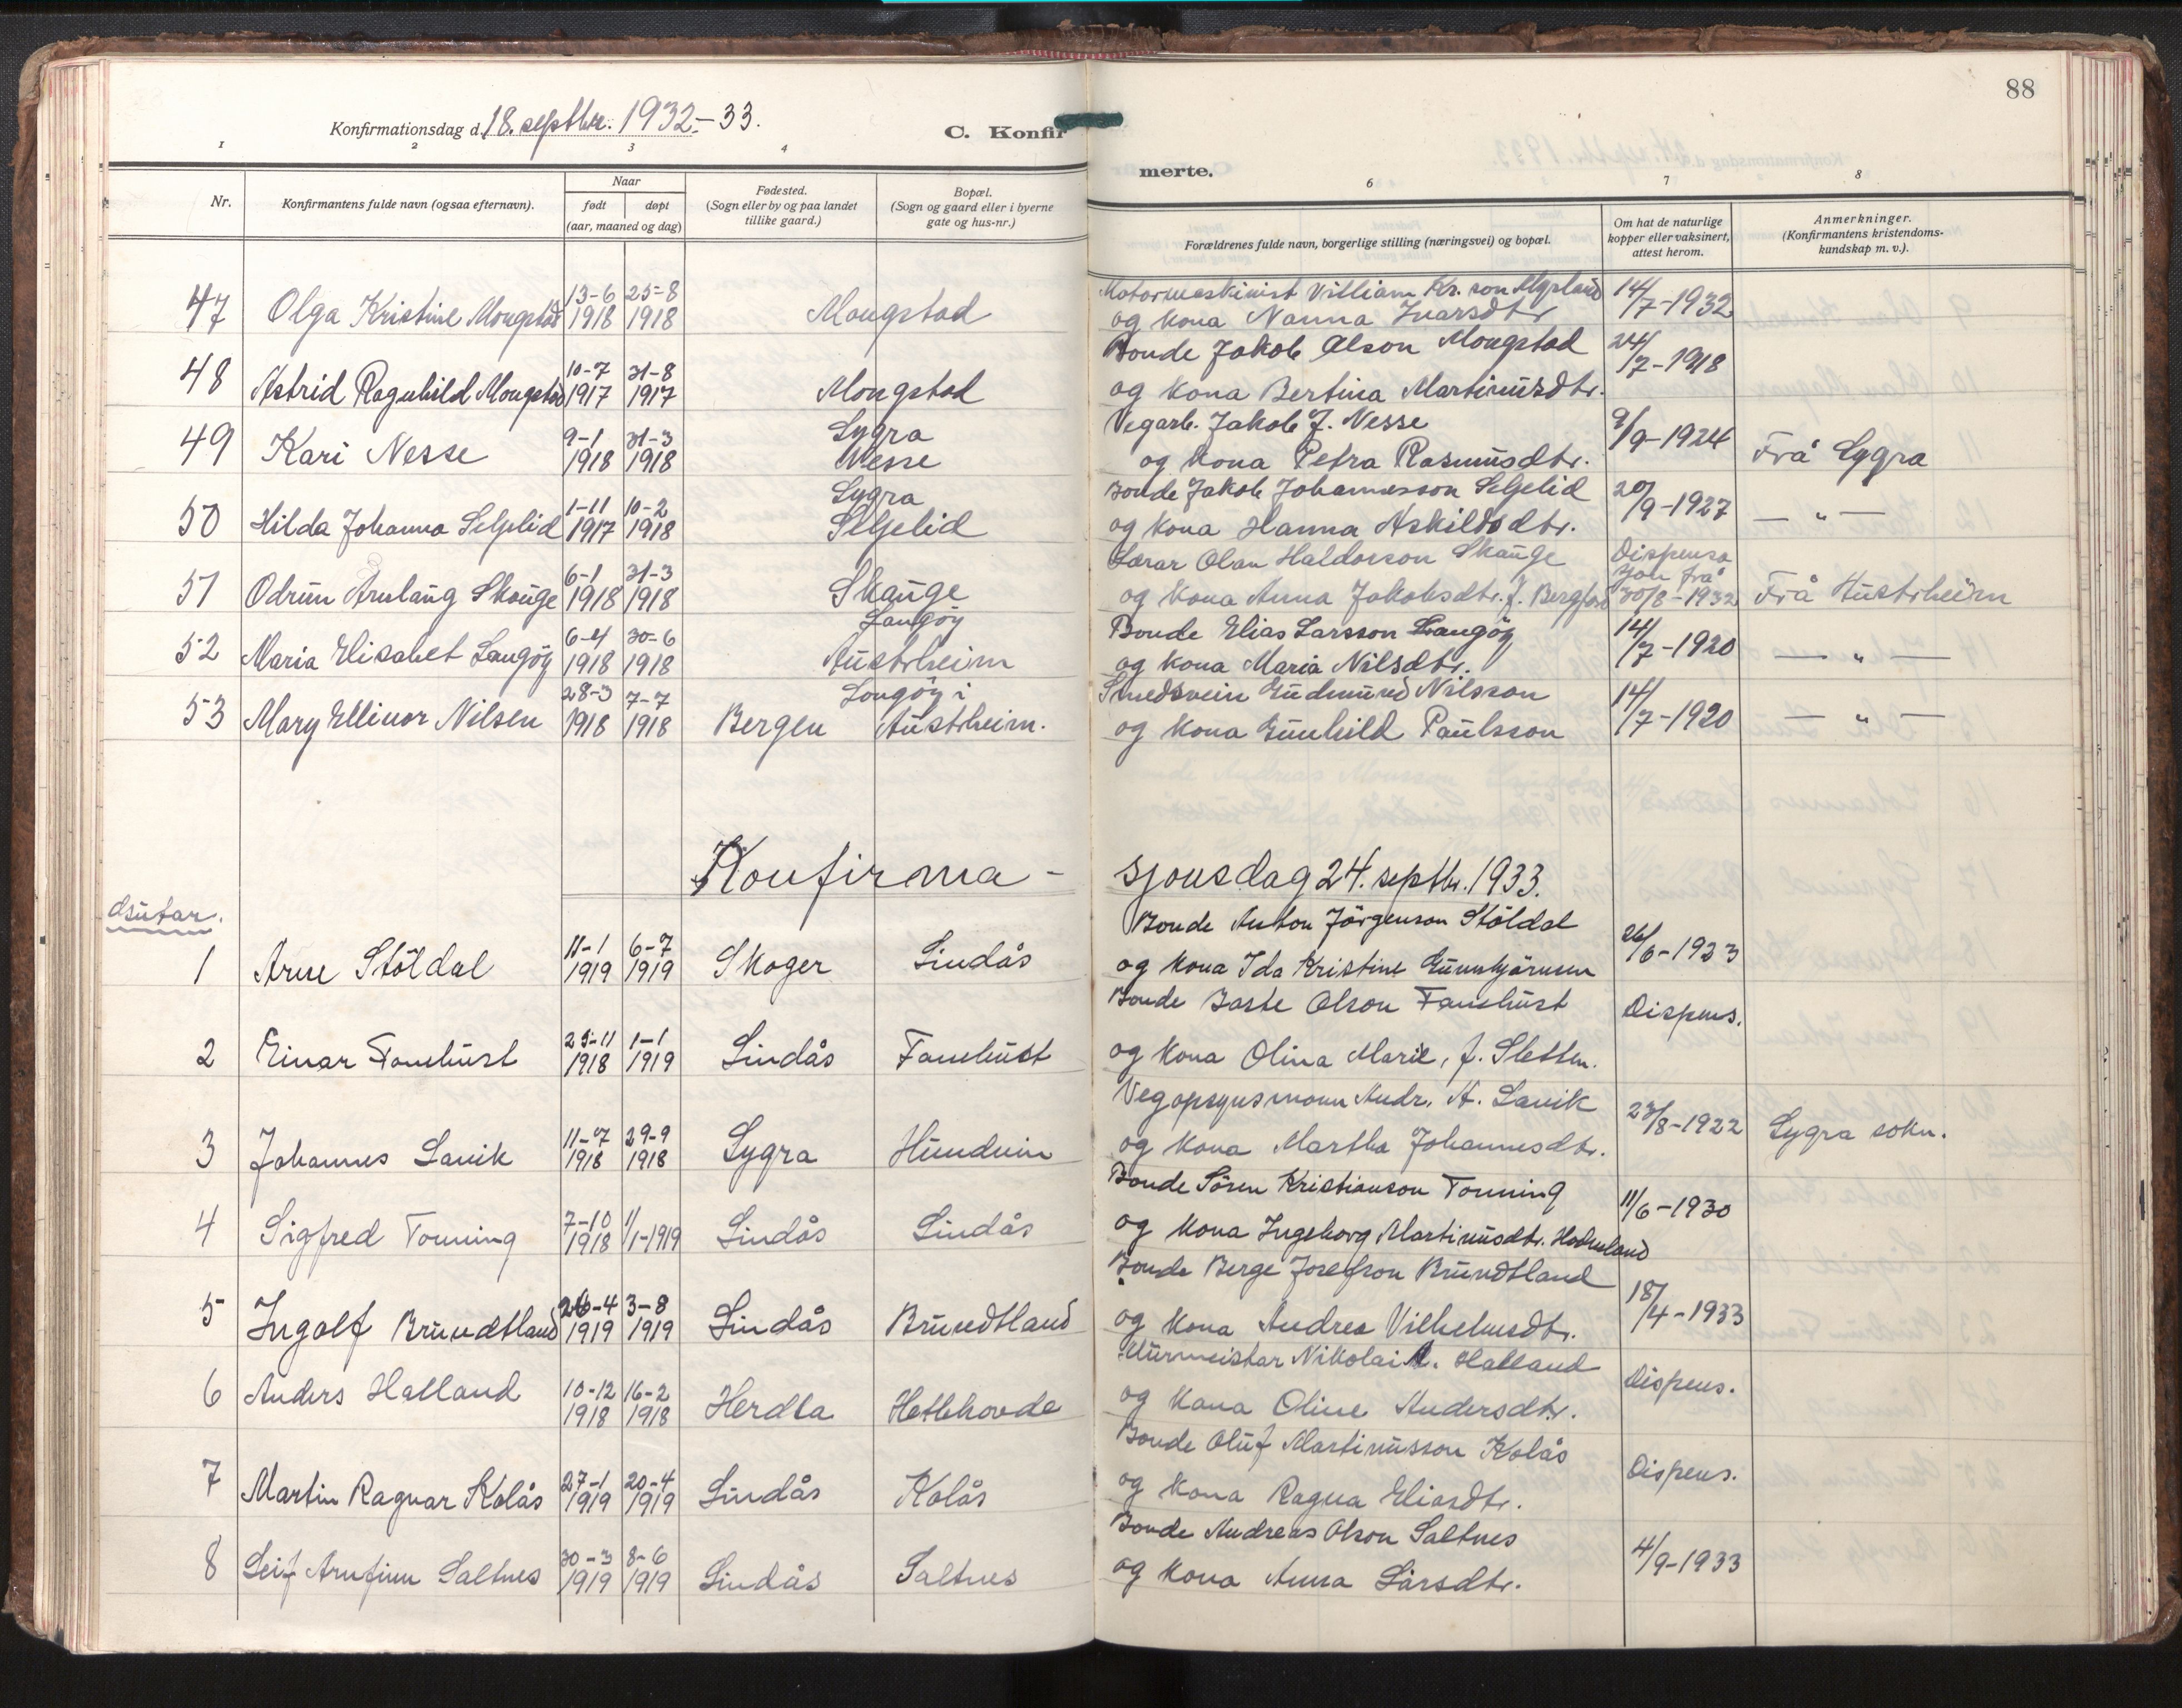 88
Konfirmationsdag d. 18. septbr. 1932.-33.
C. Konfir
merte.
1 2 3 4
6 7 8
Nr.
Konfirmantens fulde navn (ogsaa efternavn).
Naar
født døpt
(aar, maaned og dag)
Fødested.
(Sogn eller by og paa landet
tillike gaard.)
Bopæl.
(Sogn og gaard eller i byerne
gate og hus-nr.)
Forældrenes fulde navn, borgerlige stilling (næringsvei) og bopæl.
Om hat de naturlige
kopper eller vaksinert,
attest herom.
Anmerkninger.
(Konfirmantens kristendoms-
kundskap m. v.).
13-6 25-8 Motormaskinist Villiam Kr. son 14/
47 Olga Kristine Mongstad 1918 1918 Mongstad og kona Nanna Ivarsdtr 7-1932
10-7 31-8 Bonde Jakob Olson Mongstad 24/
48 Astrid Ragnhild Mongstad 1917 1917 Mongstad og kona Bertina Martinusdtr. 7-1918
9-1 31-3 Lygra Vegarb. Jakob J. Nesse 9/
49 Kari Nesse 1918 1918 Nesse og kona Petra Rasmusdtr. 9-1924 Frå Lygra
1-11 10-2 Lygra Bonde Jakob Johannesson Seljelid 20/
50 Hilda Johanna Seljelid 1917 1918 Seljelid og kona Hanna Askildsdtr. 9-1927 — " —
6-1 31-3 Lærar Olav Haldorson Skauge Dispensa
sjon frå
51 Odrun Arnlaug Skauge 1918 1918 Skauge og kona Anna Jakobsdtr. f. 30/8-1932 Frå Austrheim
6-4 30-6 Langöy Bonde Elias Larsson Langöy 14/
52 Maria Elisabet Langöy 1918 1918 Austrheim og kona Maria Nilsdtr. 7-1920 — " —
28-3 7-7 Longöy i Smedsvein Gudmund Nilsson 14/
53 Mary Ellinor Nilsen 1918 1918 Bergen Austrheim. og kona Gunhild Paulsson 7-1920 — " —
Konfirma-
sjonsdag 24. septbr. 1933.
Gutar.
11-1 6-7 Bonde Anton Jörgenson Stöldal 26/
1 Arne Stöldal 1919 1919 Skoger Lindås og kona Ida Kristine 6-1923
25-11 1-1 Bonde Baste Olson Fanehust Dispens.
2 Einar Fanehust 1918 1919 Lindås Fanehust og kona Olina Marie, f. Sletten.
11-7 29-9 Vegopsynsmann Andr. A. Lavik 23/
3 Johannes Lavik 1918 1918 Lygra Hundvin og kona Martha Johannesdtr. 8-1922 Lygra sokn.
7-10 1/ Bonde Sören Kristianson Tonning
4 Sigfred Tonning 1918 1-1919 Lindås Lindås og kona Ingeborg Martinusdtr. Hodneland 11/6-1930
26-4 3-8 Bonde Berge Josefson Brundtland 18/
5 Ingolf Brundtland 1919 1919 Lindås Brundtland og kona Andrea Vilhelmsdtr. 4-1933
10-12 16-2 Murmeistar Nikolai A. Halland Dispens.
6 Anders Halland 1918 1918 Herdla Hetlehovde og kona Oline Andersdtr.
27-1 20-4 Bonde Oluf Martinusson Kolås Dispens.
7 Martin Ragnar Kolås 1919 1919 Lindås Kolås og kona Ragna Eliasdtr.
30-3 8-6 Bonde Andreas Olson Saltnes
8 Leif Arnfinn Saltnes 1919 1919 Lindås Saltnes og kona Anna Larsdtr. 4/9-1933